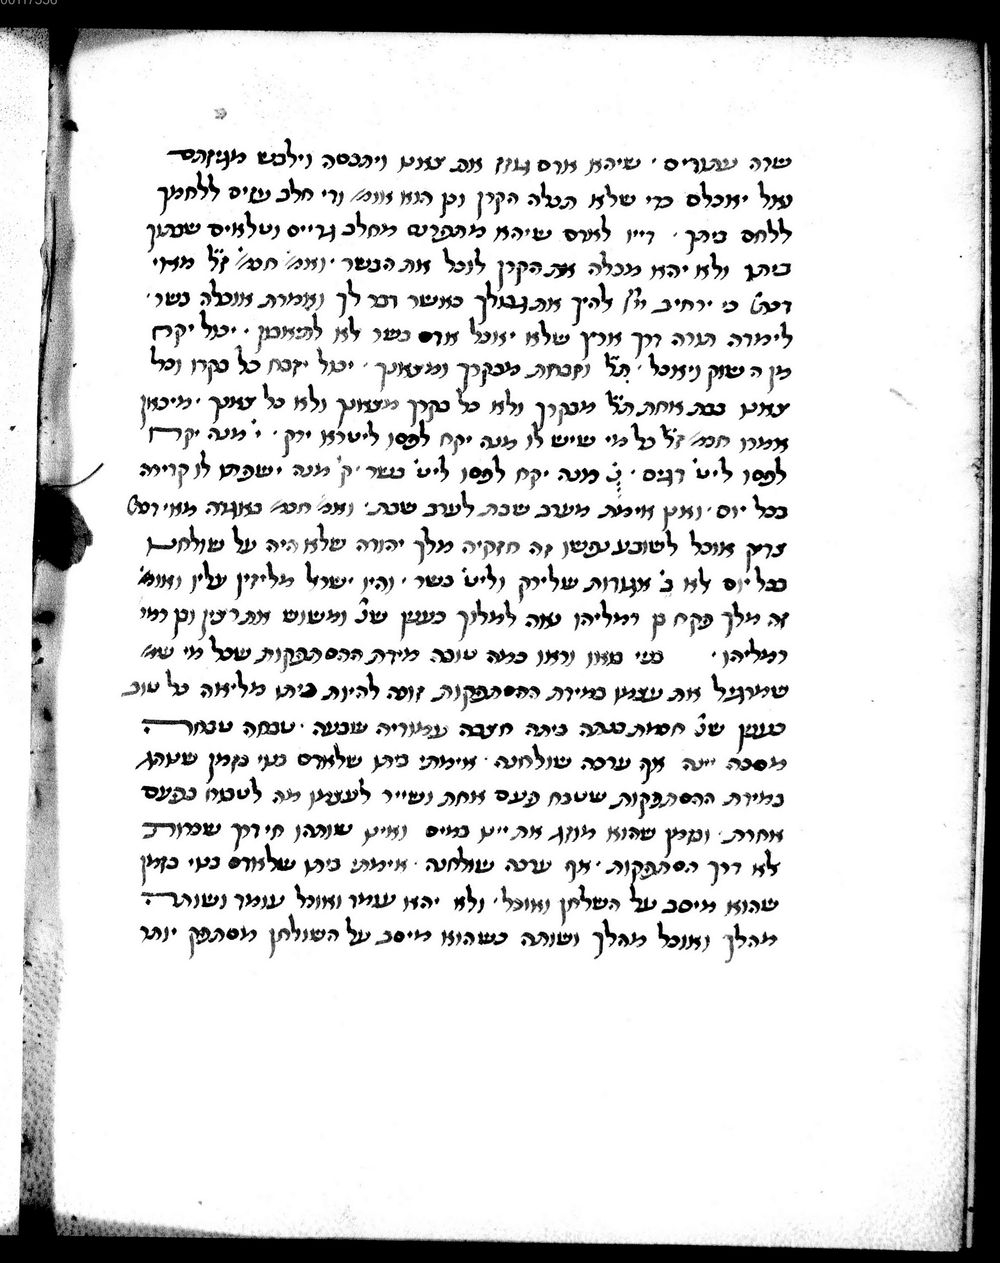 שדה עתודים · שיהא אדם גוזז את צאנו ויתכסה וילבש מגיזתם
ואל יאכלם כדי שלא תכלה הקרן וכן הוא אומ׳ ודי חלב עזים ללחמך
ללחם ביתך · דייו לאדם שיהא מתפרנס מחלב גדיים וטלאים שבתוך
ביתו ולא יהא מכלה את הקרן לוכל את הבשר · ואמ׳ חכמ׳ ז״ל מאי
דכת׳ כי ירחיב יי׳ להיך את גבולך כאשר דבר לך ואמרת אוכלה בשר ·
לימדה תורה דרך ארץ שלא יאכל אדם בשר לא לתיאבון · יכול יקח
מן השוק ויאכל · ת״ל וזבחת מבקרך ומצאנך · יכול יזבח כל בקרו וכל
צאנו בבת אחת ת״ל מבקרך ולא כל בקרך מצאנך ולא כל צאנך · מיכאן
אמרו חכמ׳ ז״ל כל מי שיש לו מנה יקח לפסו ליטרא ירק · י׳ מנה יקח
לפסו ליט׳ דגים · נ׳ מנה יקח לפסו ליט׳ בשר · ק׳ מנה ישפתו לו קדירה
בכל יום · ואינו אימת מערב שבת לערב שבת · ואמ׳ חכמ׳ באגדה מאי דכת׳
צדיק אוכל לשובע נפשו זה חזקיה מלך יהודה שלא היה על שולחנו
בכל יום לא ב׳ אגודות שלירק וליט׳ בשר · והיו ישראל מליזין עליו ואומ׳
זה מלך פקח בן רמליהו נאה למלוך כענין שנ׳ ומשוש את רצין ובן רמי
רמליהו · בני בואו וראו כמה טובה מידת ההסתפקות שכל מי שמ׳
שמרגיל את עצמו במידת ההסתפקות זוכה להיות ביתו מליאה כל טוב
כענין שנ׳ חכמות בנתה ביתה חצבה עמודיה שבעה · טבחה טבחה
מסכה יינה אף ערכה שולחנה · אימתי ביתו שלאדם בנוי בזמן שנוהג
במידת ההסתפקות שטבח פעם אחת ושייר לעצמו מה לטבוח בפעם
אחרת · ובזמן שהוא מוזג את יינו במים ואינו שותהו חי דרך שכרות
לא דרך הסתפקות · אף ערכה שולחנה · אימתי ביתו שלאדם בנוי בזמן
שהוא מיסב על השלחן ואוכל · ולא יהא עומד ואוכל עומד ושותה
מהלך ואוכל מהלך ושותה כשהוא מיסב על השולחן מסתפק יותר